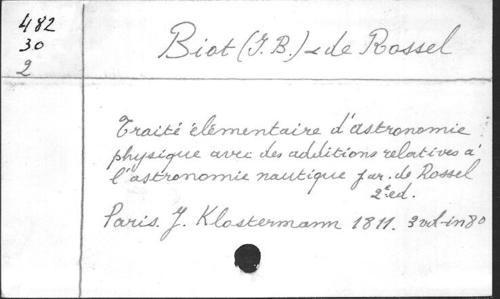 482
30
2
Biot (J. B.) & de Rossel
Traité élémentaire d'astronomie
physique avec des additions relatives à
l'astronomie nautique par. de Rossel
2e ed.
Paris. J. Klostermann 1811. 3 vol-in 80